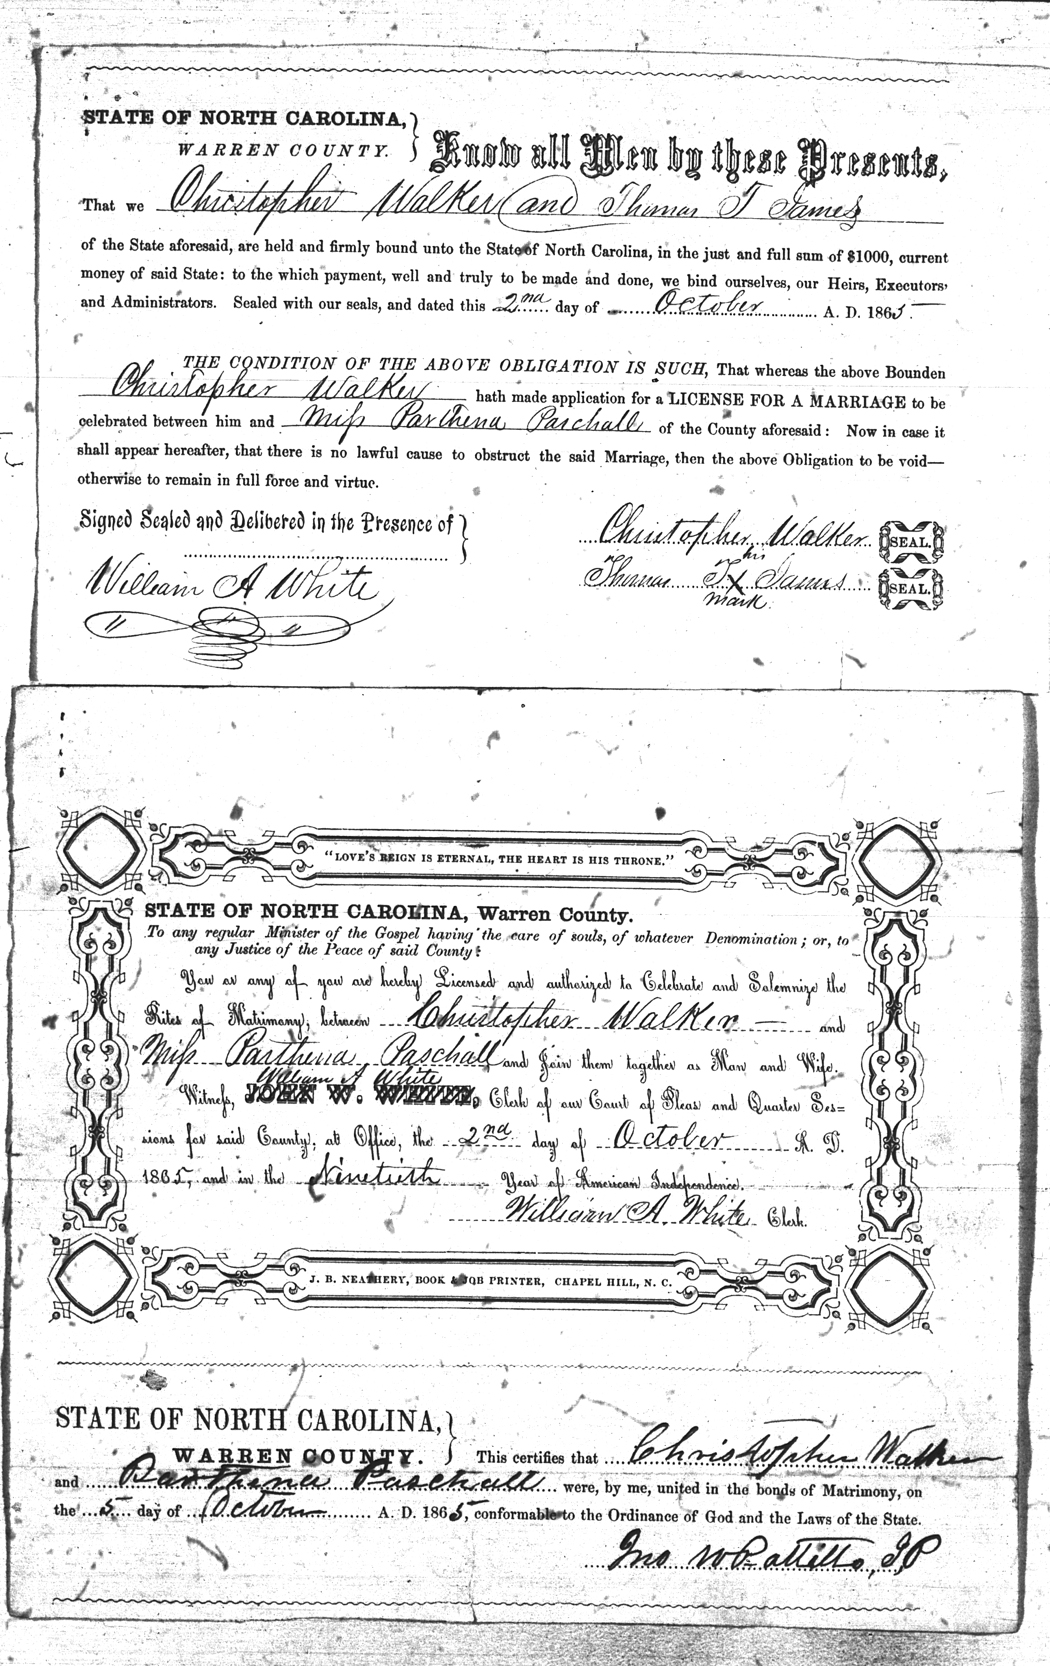 STATE OF NORTH CAROLINA,
WARREN COUNTY.
Know all Men by these Presents,
That we Christopher Walker and Thomas T James
of the State aforesaid, are held and firmly bound unto the State of North Carolina, in the just and full sum of $1000, current
money of said State: to the which payment, well and truly to be made and done, we bind ourselves, our Heirs, Executors,
and Administrators. Sealed with our seals, and dated this 2nd day of October A. D. 1865
THE CONDITION OF THE ABOVE OBLIGATION IS SUCH, That whereas the above Bounden
Christopher Walker hath made application for a LICENSE FOR A MARRIAGE to be
celebrated between him and Miss Parthena Paschall of the County aforesaid: Now in case it
shall appear hereafter, that there is no lawful cause to obstruct the said Marriage, then the above Obligation to be void—
otherwise to remain in full force and virtue.
Signed Sealed and Delibered in the Presence of
Christopher Walker SEAL.
his
Thomas T x James SEAL.
mark
William A White
"LOVE'S REIGN IS ETERNAL, THE HEART IS HIS THRONE."
STATE OF NORTH CAROLINA, Warren County.
To any regular Minister of the Gospel having the care of souls, of whatever Denomination; or, to
any Justice of the Peace of said County:
You or any of you are hereby Licensed and authorized to Celebrate and Solemnize the
Rites of Matrimony, between Christopher Walker and
Miss Parthena Paschall and Join them together as Man and Wife.
William A White
Witness, JOHN W. WHITE, Clerk of our Court of Pleas and Quarter Ses=
sions for said County, at Office, the 2nd day of October A. D.
1865, and in the Ninetieth Year of American Independence.
William A. White Clerk.
J. B. NEATHERY, BOOK & JOB PRINTER, CHAPEL HILL, N. C.
STATE OF NORTH CAROLINA,
WARREN COUNTY.
This certifies that Christopher Walker
and Parthena Paschall were, by me, united in the bonds of Matrimony, on
the 5 day of October A. D. 1865, conformable to the Ordinance of God and the Laws of the State.
Jno W Pattillo, J,P